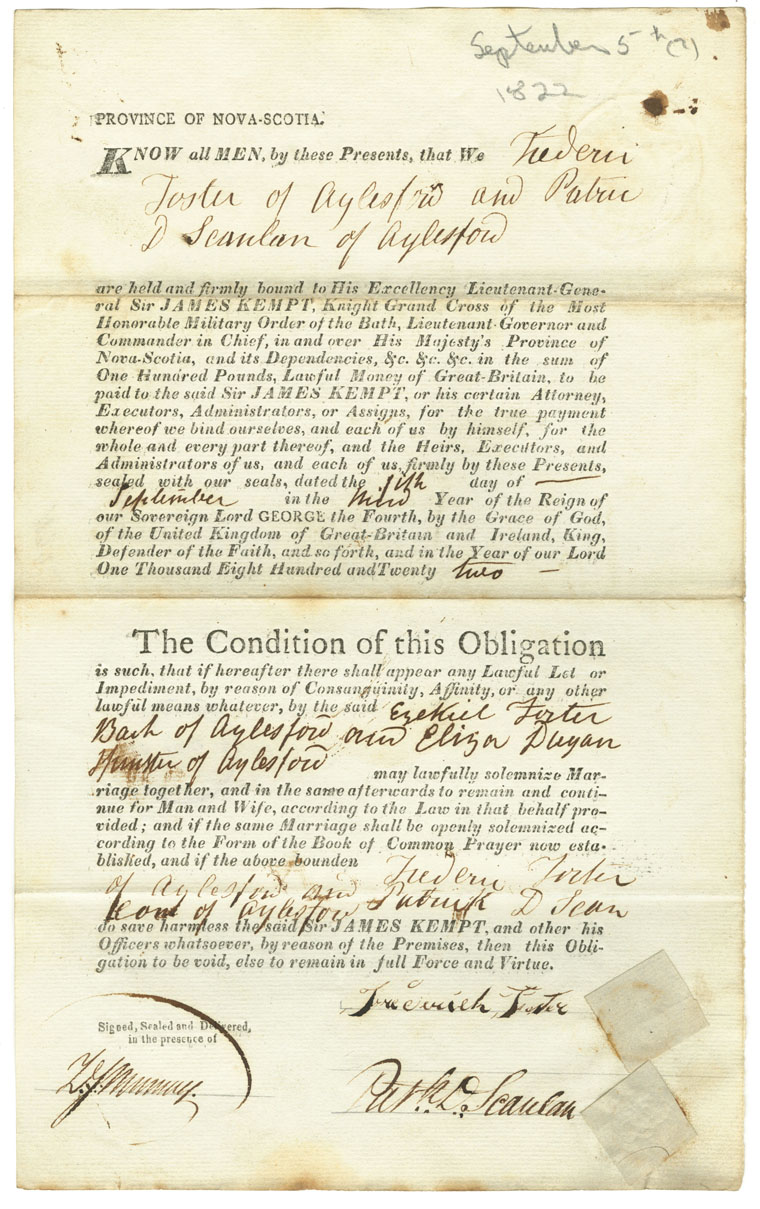 September 5th (?)
1822
PROVINCE OF NOVA-SCOTIA.
KNOW all MEN, by these Presents, that We Frederic
Foster of Aylesford and Patric
D Scanlan of Aylesford
are held and firmly bound to His Excellency Lieutenant-Gene-
ral Sir JAMES KEMPT, Knight Grand Cross of the Most
Honorable Military Order of the Bath, Lieutenant-Governor and
Commander in Chief, in and over His Majesty's Province of
Nova-Scotia, and its Dependencies, &c. &c. &c. in the sum of
One Hundred Pounds, Lawful Money of Great-Britain, to be
paid to the said Sir JAMES KEMPT, or his certain Attorney,
Executors, Administrators, or Assigns, for the true payment
whereof we bind ourselves, and each of us by himself, for the
whole and every part thereof, and the Heirs, Executors, and
Administrators of us, and each of us, firmly by these Presents,
sealed with our seals, dated the fifth day of —
September in the third Year of the Reign of
our Sovereign Lord GEORGE the Fourth, by the Grace of God,
of the United Kingdom of Great-Britain and Ireland, King,
Defender of the Faith, and so forth, and in the Year of our Lord
One Thousand Eight Hundred and Twenty two —
The Condition of this Obligation
is such, that if hereafter there shall appear any Lawful Let or
Impediment, by reason of Consanguinity, Affinity, or any other
lawful means whatever, by the said Ezekiel Foster
Bach of Aylesford and Eliza Dugan
Spinster of Aylesford may lawfully solemnize Mar-
riage together, and in the same afterwards to remain and conti-
nue for Man and Wife, according to the Law in that behalf pro-
vided; and if the same Marriage shall be openly solemnized ac-
cording to the Form of the Book of Common Prayer now esta-
blisked, and if the above bounden Frederic Foster
of Aylesford and Patrick D Scan
of Aylesford
do save harmless the said Sir JAMES KEMPT, and other his
Officers whatsoever, by reason of the Premises, then this Obli-
gation to be void, else to remain in full Force and Virtue.
Frederick Foster
Signed, Sealed and Delivered,
in the presence of
Patk. D. Scanlan